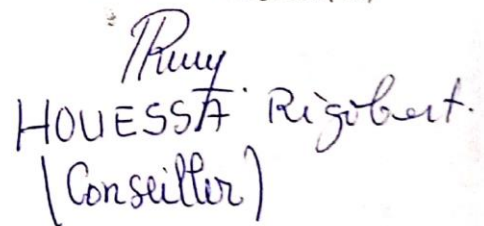 HOUESSA Rigobert.
(Conseiller)